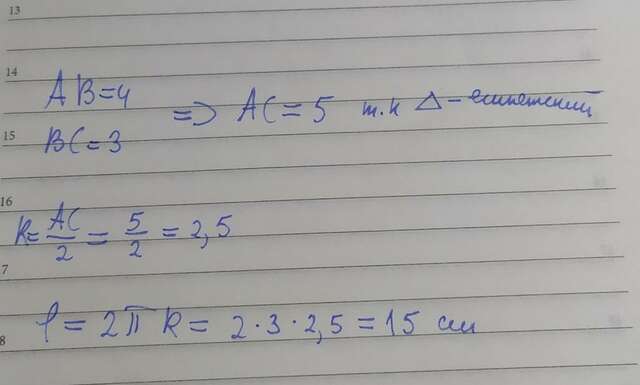 13
14
AB=4
BC=3
=> AC=5 т.к △-египетский
15
16
R=AC/2=5/2=2,5
7
l=2πR=2·3·2,5=15 см
8